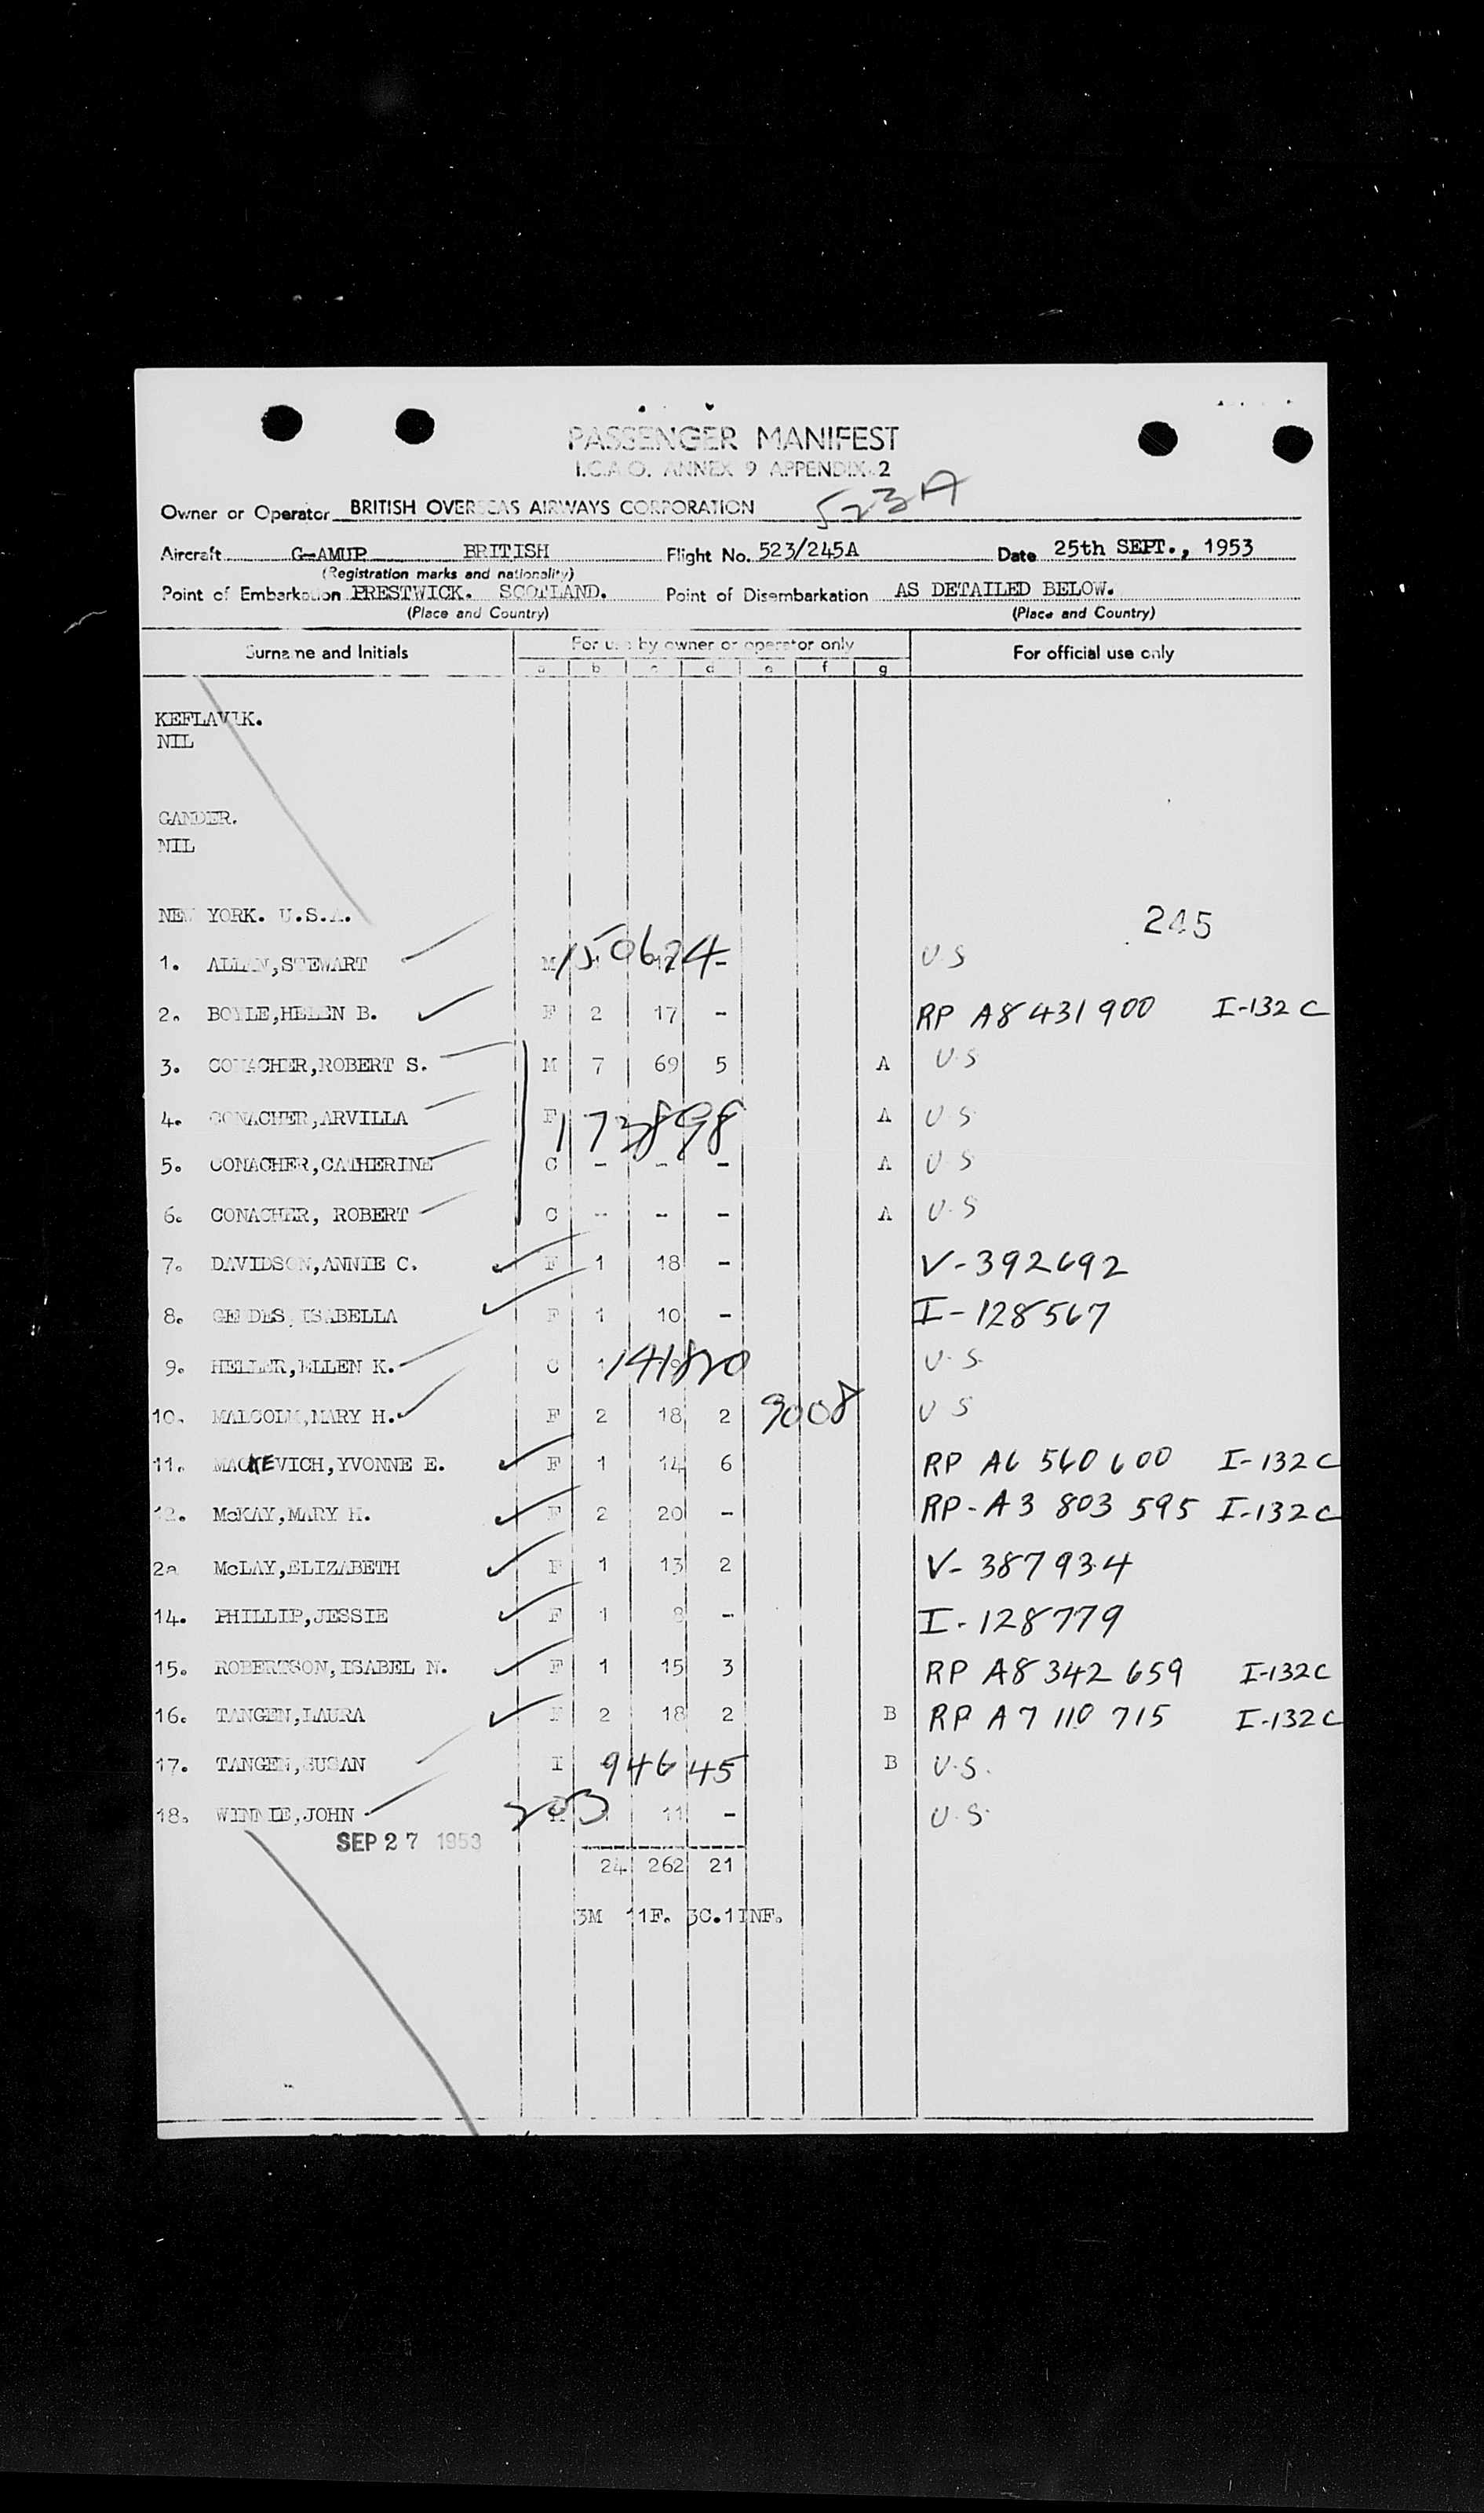 PASSENGER MANIFEST
I.C.A.O. ANNEX 9 APPENDIX 2
Owner or Operator BRITISH OVERSEAS AIRWAYS CORPORATION 523A
Aircraft G-AMUP BRITISH Flight No. 523/245A Date 25th SEPT., 1953
(Registration marks and nationality)
Point of Embarkation PRESTWICK. SCOTLAND. Point of Disembarkation AS DETAILED BELOW.
(Place and Country) (Place and Country)
Surname and Initials For use by owner or operator only For official use only
a b c d e f g
KEFLAVIK.
NIL
GANDER.
NIL
NEW YORK. U.S.A. 245
1. ALLAN,STEWART M 150624 - U.S
2. BOYLE,HELEN B. F 2 17 - RP A8 431 900 I-132 C
3. CONACHER,ROBERT S. M 7 69 5 A U.S
4. CONACHER,ARVILLA F 173898 A U.S
5. CONACHER,CATHERINE C - - - A U S
6. CONACHER, ROBERT C - - - A U.S
7. DAVIDSON,ANNIE C. F 1 18 - V-392692
8. GEDDES,ISABELLA F 1 10 - I-128567
9. HELLER,ELLEN K. C 141820 U.S.
10. MALCOLM,MARY H. F 2 18 2 9008 U S
11. MACKEVICH,YVONNE E. F 1 14 6 RP A6 560 600 I-132C
12. McKAY,MARY H. F 2 20 - RP-A3 803 595 I-132C
2a McLAY,ELIZABETH F 1 13 2 V-387934
14. PHILLIP,JESSIE F 1 8 - I-128779
15. ROBERTSON,ISABEL N. F 1 15 3 RP A8 342 659 I-132C
16. TANGEN,LAURA F 2 18 2 B RP A7 110 715 I-132C
17. TANGEN,SUSAN I 94645 B U.S.
18. WINNIE,JOHN 203 11 - U.S.
SEP 27 1953
24 262 21
3M 11F. 3C.1INF.